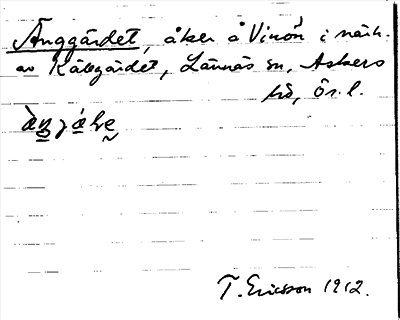 Änggärdet, åker å Vinön i närh.
av Kålgärdet, Lännäs sn, Askers
hd, Ör. l.
T. Ericsson 1912.